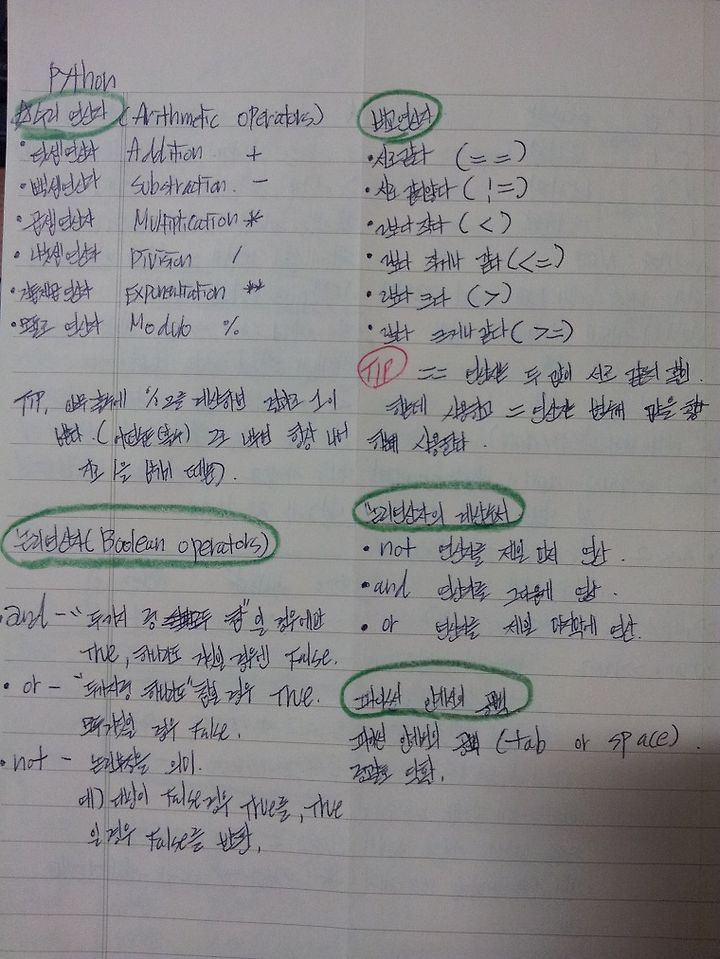 Python
☆수리 연산자 (Arithmetic operators)
• 덧셈연산자 Addition +
• 뺄셈연산자 Substraction. -
• 곱셈연산자 Multiplication *
• 나눗셈연산자 Division /
• 거듭제곱연산자 Exponentiation **
• 모듈로 연산자 Modulo %
TIP, 홀수에 % 2를 계산하면 1이
항상 나머
때문).
논리연산자(Boolean operators)
• and - "두가지 중 모두 참"일 경우에만
True, 하나라도 거짓일 경우엔 False.
• or - "두가지중 하나라도" 참일 경우 True.
모두거짓일 경우 False.
• not - 논리부정을 의미.
예) 대상이 False경우 True를, True
일 경우 False를 반환.
비교연산자
• 서로같다 (==)
• 서로 같지않다 (!=)
• 그보다 작다 (<)
• 그보다 작거나 같다 (<=)
• 그보다 크다 (>)
• 그보다 크거나같다 (>=)
TIP == 연산자는 두 값이 서로 같은지 확인
하는데 사용하고 = 연산자는 변수에 값을
하는데 사용한다.
논리연산자의 계산순서
• not 연산자를 제일 먼저 연산.
• and 연산자를 그다음에 연산.
• or 연산자를 제일 마지막에 연산.
파이썬 안에서의 공백
파이썬 안에서의 공백 (tab or space).